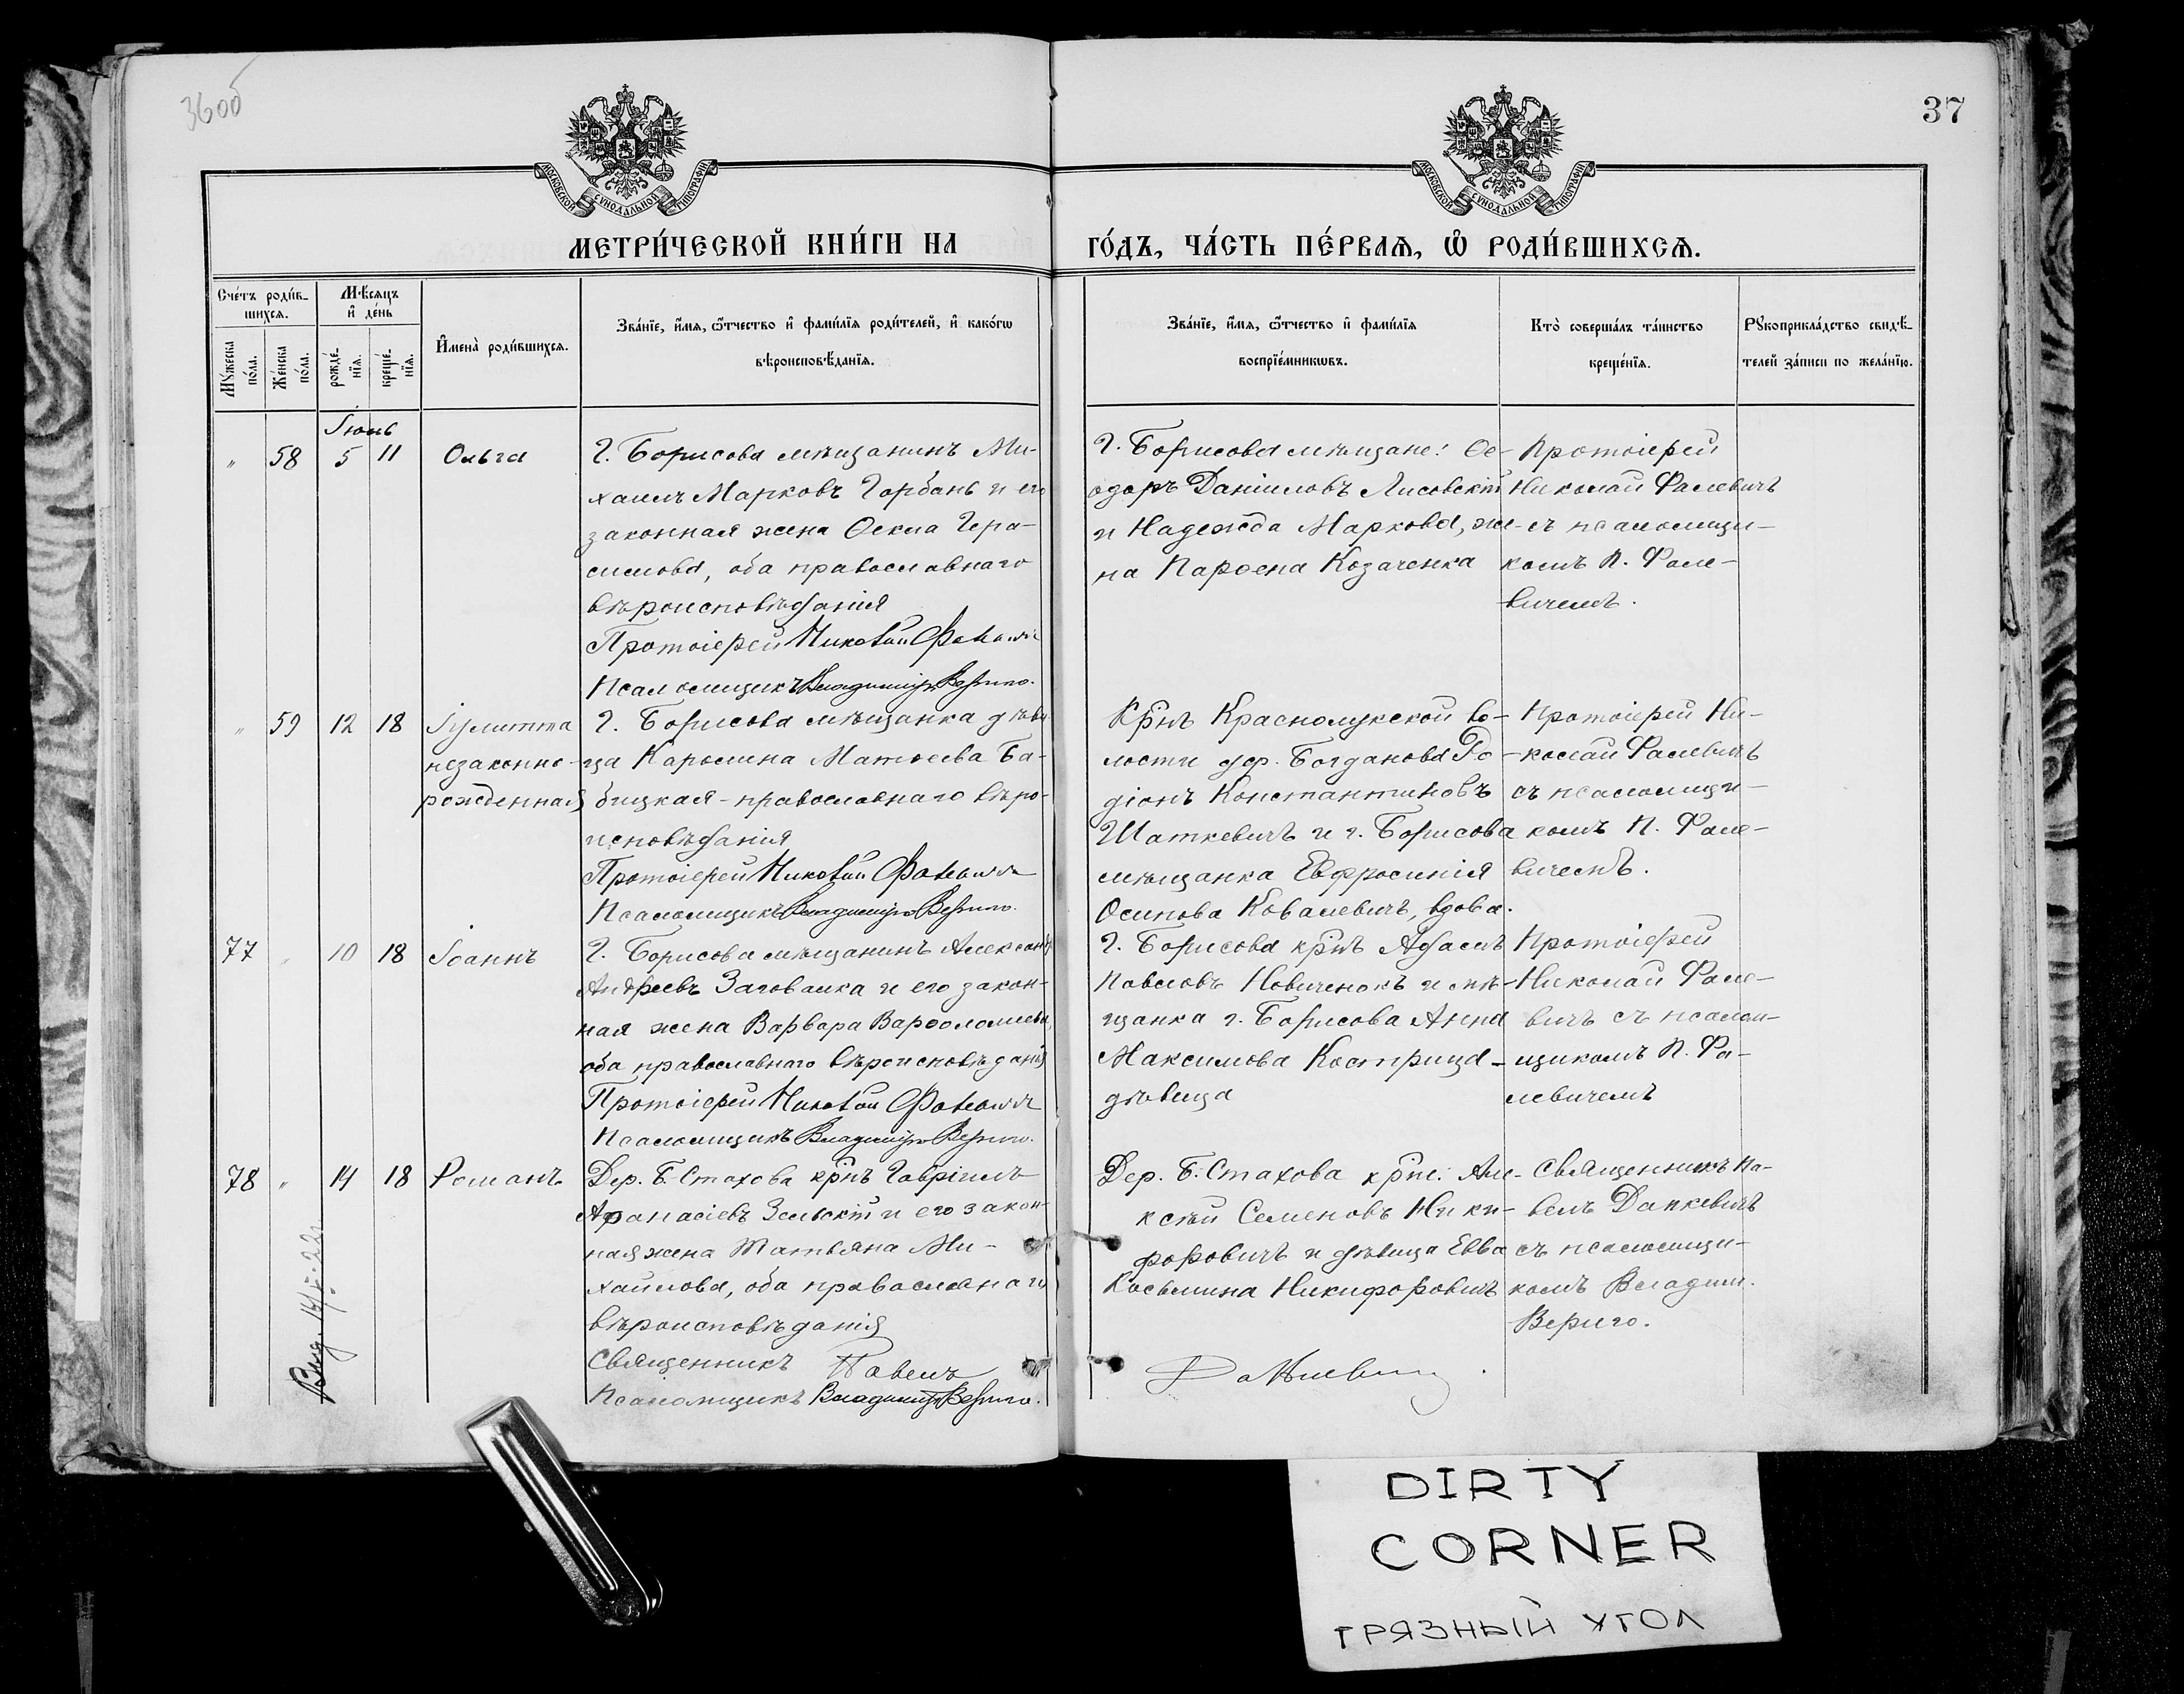 36об
37
МОСКОВСКОЙ СѴНОДАЛЬНОЙ ТИПОГРАФІИ
МОСКОВСКОЙ СѴНОДАЛЬНОЙ ТИПОГРАФІИ
МЕТРИ́ЧЕСКОЙ КНИ́ГИ НА
ГО́ДЪ, ЧА́СТЬ ПЕ́РВАѦ, Ѡ҆ РОДИ́ВШИХСѦ.
Сче́тъ роди́в-
шихсѧ.
Мꙋ́жеска
по́ла.
Же́нска
по́ла.
Мѣ́сѧцъ
и҆ де́нь
рожде́-
нїѧ.
креще́-
нїѧ.
И҆мена̀ роди́вшихсѧ.
Зва́нїе, и҆́мѧ, ѻ҆́тчество и҆ фами́лїѧ роди́телей, и҆ како́гѡ
вѣроисповѣ́данїѧ.
Зва́нїе, и҆́мѧ, ѻ҆́тчество и҆ фами́лїѧ
воспрїе́мникѡвъ.
Кто̀ соверша́лъ та́инство
креще́нїѧ.
Рꙋкоприкла́дство свидѣ́-
телей за́писи по жела́нїю.
Іюнь
" 58 5 11 Ольга
Г. Борисова мѣщанинъ Ми-
хаилъ Марковъ Горбань и его
законная жена Ѳекла Гера-
симова, оба православнаго
вѣроисповѣданія
Протоіерей Николай Фалевичъ
Псаломщикъ Владиміръ Вериго.
Г. Борисова мѣщане: Ѳе-
одоръ Даніиловъ Лисовскій
и Надежда Маркова, же-
на Парѳена Козаченка
Протоіерей
Николай Фалевичъ
съ псаломщи-
комъ П. Фале-
вичемъ.
" 59 12 18 Іулитта
незаконно-
рожденная
Г. Борисова мѣщанка дѣви-
ца Каролина Матѳеева Ба-
бицкая - православнаго вѣро-
исповѣданія
Протоіерей Николай Фалевичъ
Псаломщикъ Владиміръ Вериго.
Кр̃нъ Краснолукской во-
лости дер. Богданова Ро-
діонъ Константиновъ
Шаткевичъ и г. Борисова
мѣщанка Евфросинія
Осипова Ковалевичъ, вдова.
Протоіерей Ни-
колай Фалевичъ
съ псаломщи-
комъ П. Фале-
вичемъ.
77 " 10 18 Іоаннъ
Г. Борисова мѣщанинъ Александръ
Андреевъ Заговалка и его закон-
ная жена Варвара Варѳоломеева,
оба православнаго вѣроисповѣданія
Протоіерей Николай Фалевичъ
Псаломщикъ Владиміръ Вериго.
Г. Борисова кр̃нъ Адамъ
Павловъ Новиченокъ и мѣ-
щанка г. Борисова Анна
Максимова Кострица-
дѣвица
Протоіерей
Николай Фале-
вичъ съ псалом-
щикомъ П. Фа-
левичемъ
78 " 14 18 Романъ
Дер. Б.-Стахова кр̃нъ Гавріилъ
Аѳанасіевъ Зельскій и его закон-
ная жена Татьяна Ми-
хаилова, оба православнаго
вѣроисповѣданія
Священникъ Павелъ
Данкевичъ
Псаломщикъ Владиміръ Вериго.
Дер. Б. Стахова кр̃не: Але-
ксѣй Семеновъ Ники-
форовичъ и дѣвица Евва
Косьмина Никифоровичъ
Священникъ Па-
велъ Данкевичъ
съ псаломщи-
комъ Владим.
Вериго.
Выд. 14/I-22
DIRTY
CORNER
ГРЯЗНЫЙ УГОЛ